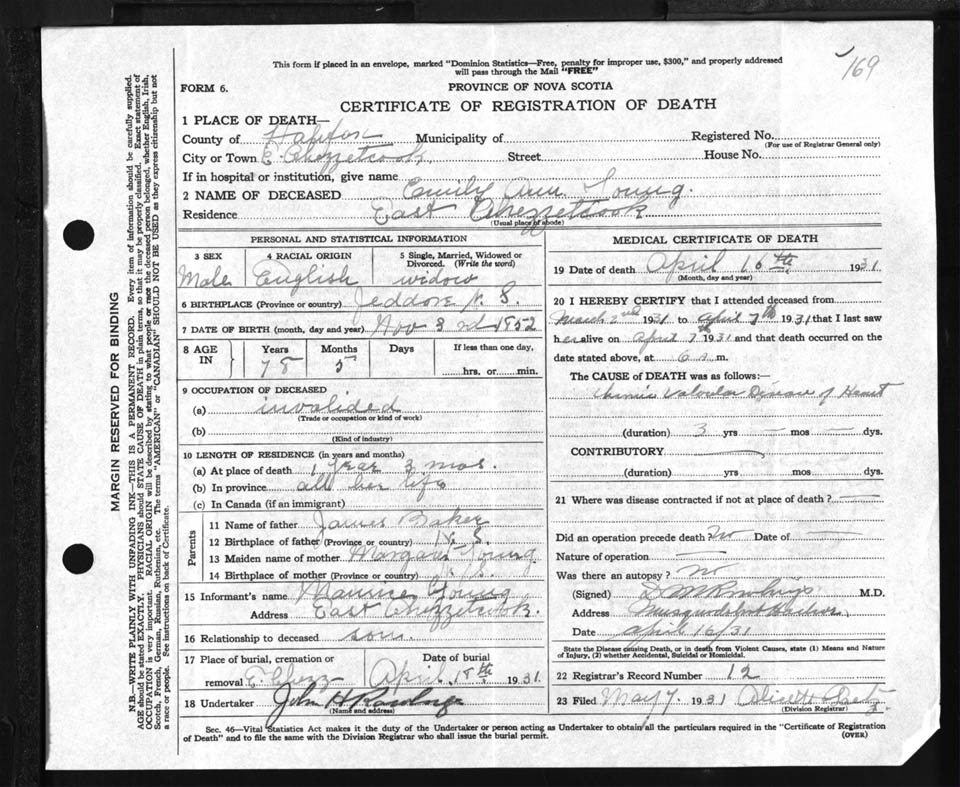 169
This form if placed in an envelope, marked "Dominion Statistics—Free, penalty for improper use, $300," and properly addressed
will pass through the Mail "FREE"
FORM 6.
PROVINCE OF NOVA SCOTIA
CERTIFICATE OF REGISTRATION OF DEATH
1 PLACE OF DEATH—
County of Halifax Municipality of Registered No.
(For use of Registrar General only)
City or Town E. Chezzetcook Street House No.
If in hospital or institution, give name
2 NAME OF DECEASED Emily Ann Young.
Residence East Chezzetcook
(Usual place of abode)
PERSONAL AND STATISTICAL INFORMATION
3 SEX 4 RACIAL ORIGIN 5 Single, Married, Widowed or
Divorced. (Write the word)
Male English widow
6 BIRTHPLACE (Province or country) Jeddore N. S.
7 DATE OF BIRTH (month, day and year) Nov 3rd 1952
8 AGE IN Years Months Days If less than one day,
78 5 hrs. or min.
9 OCCUPATION OF DECEASED
(a) invalided
(Trade or occupation or kind of work)
(b)
(Kind of industry)
10 LENGTH OF RESIDENCE (in years and months)
(a) At place of death 1 year 3 mos.
(b) In province all her life
(c) In Canada (if an immigrant)
Parents
11 Name of father James Baker
12 Birthplace of father (Province or country) N. S.
13 Maiden name of mother Margaret Young
14 Birthplace of mother (Province or country) N. S.
15 Informant's name Maurice Young
Address East Chezzetcook.
16 Relationship to deceased son.
17 Place of burial, cremation or Date of burial
removal E Chezz April 18th 1931
18 Undertaker John H
(Name and address)
MEDICAL CERTIFICATE OF DEATH
19 Date of death April 16th 1931
(Month, day and year)
20 I HEREBY CERTIFY that I attended deceased from
March 2nd 1931 to April 7th 1931 that I last saw
her alive on April 7th 1931 and that death occurred on the
date stated above, at 6 A. m.
The CAUSE of DEATH was as follows:—
Chronic Valvular Disease of Heart
(duration) 3 yrs — mos — dys.
CONTRIBUTORY —
(duration) yrs mos dys.
21 Where was disease contracted if not at place of death? —
Did an operation precede death? No Date of —
Nature of operation —
Was there an autopsy? No
(Signed) M.D.
Address Musquodoboit Harbor
Date April 16/31
State the Disease causing Death, or in death from Violent Causes, state (1) Means and Nature
of Injury, (2) whether Accidental, Suicidal or Homicidal.
22 Registrar's Record Number 12
23 Filed May 7. 1931
(Division Registrar)
Sec. 46—Vital Statistics Act makes it the duty of the Undertaker or person acting as Undertaker to obtain all the particulars required in the "Certificate of Registration
of Death" and to file the same with the Division Registrar who shall issue the burial permit. (OVER)
MARGIN RESERVED FOR BINDING
N.B.—WRITE PLAINLY WITH UNFADING INK—THIS IS A PERMANENT RECORD. Every item of information should be carefully supplied.
AGE should be stated EXACTLY. PHYSICIANS should STATE CAUSE OF DEATH in plain terms, so that it may be properly classified. Exact statement of
OCCUPATION is very important. RACIAL ORIGIN will be described by stating to what people or race the deceased person belonged, whether English, Irish,
Scotch, French, German, Russian, Ruthenian, etc. The terms "AMERICAN" or "CANADIAN" SHOULD NOT BE USED as they express citizenship but not
a race or people. See instructions on back of Certificate.